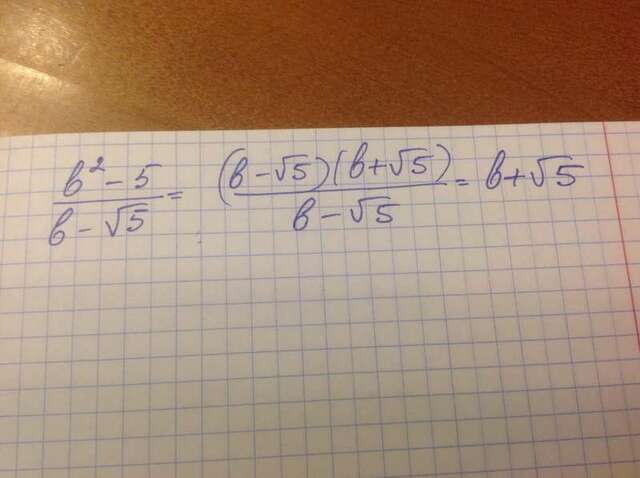 (b² - 5)/(b - √5) = ((b - √5)(b + √5))/(b - √5) = b + √5